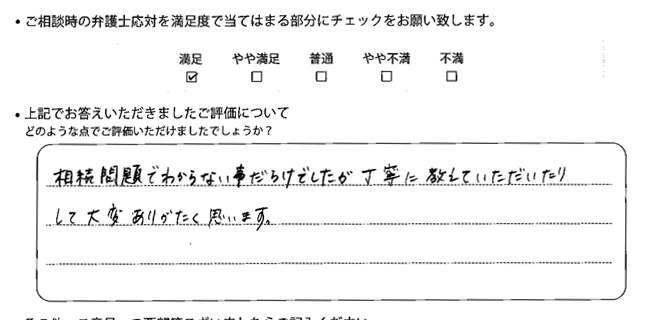 ・ご相談時の弁護士応対を満足度で当てはまる部分にチェックをお願い致します。
満足 やや満足 普通 やや不満 不満
☑ ☐ ☐ ☐ ☐
・上記でお答えいただきましたご評価について
どのような点でご評価いただけましたでしょうか？
相続問題でわからない事だらけでしたが丁寧に教えていただいたり
して大変ありがたく思います。